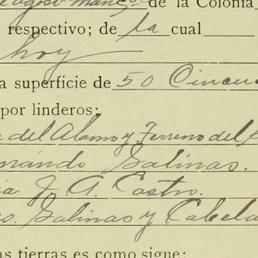 de la Colonia
respectivo; de la cual
hoy
a superficie de 50 Cincu
por linderos:
del Alamo y Terreno del
nando Salinas.
ia J. A. Castro.
s. Salinas y Cabela
as tierras es como sigue: